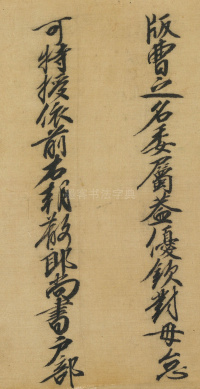 版曹之名委屬益優欽對毋怠
可特授依前右朝散郎尚書戶部